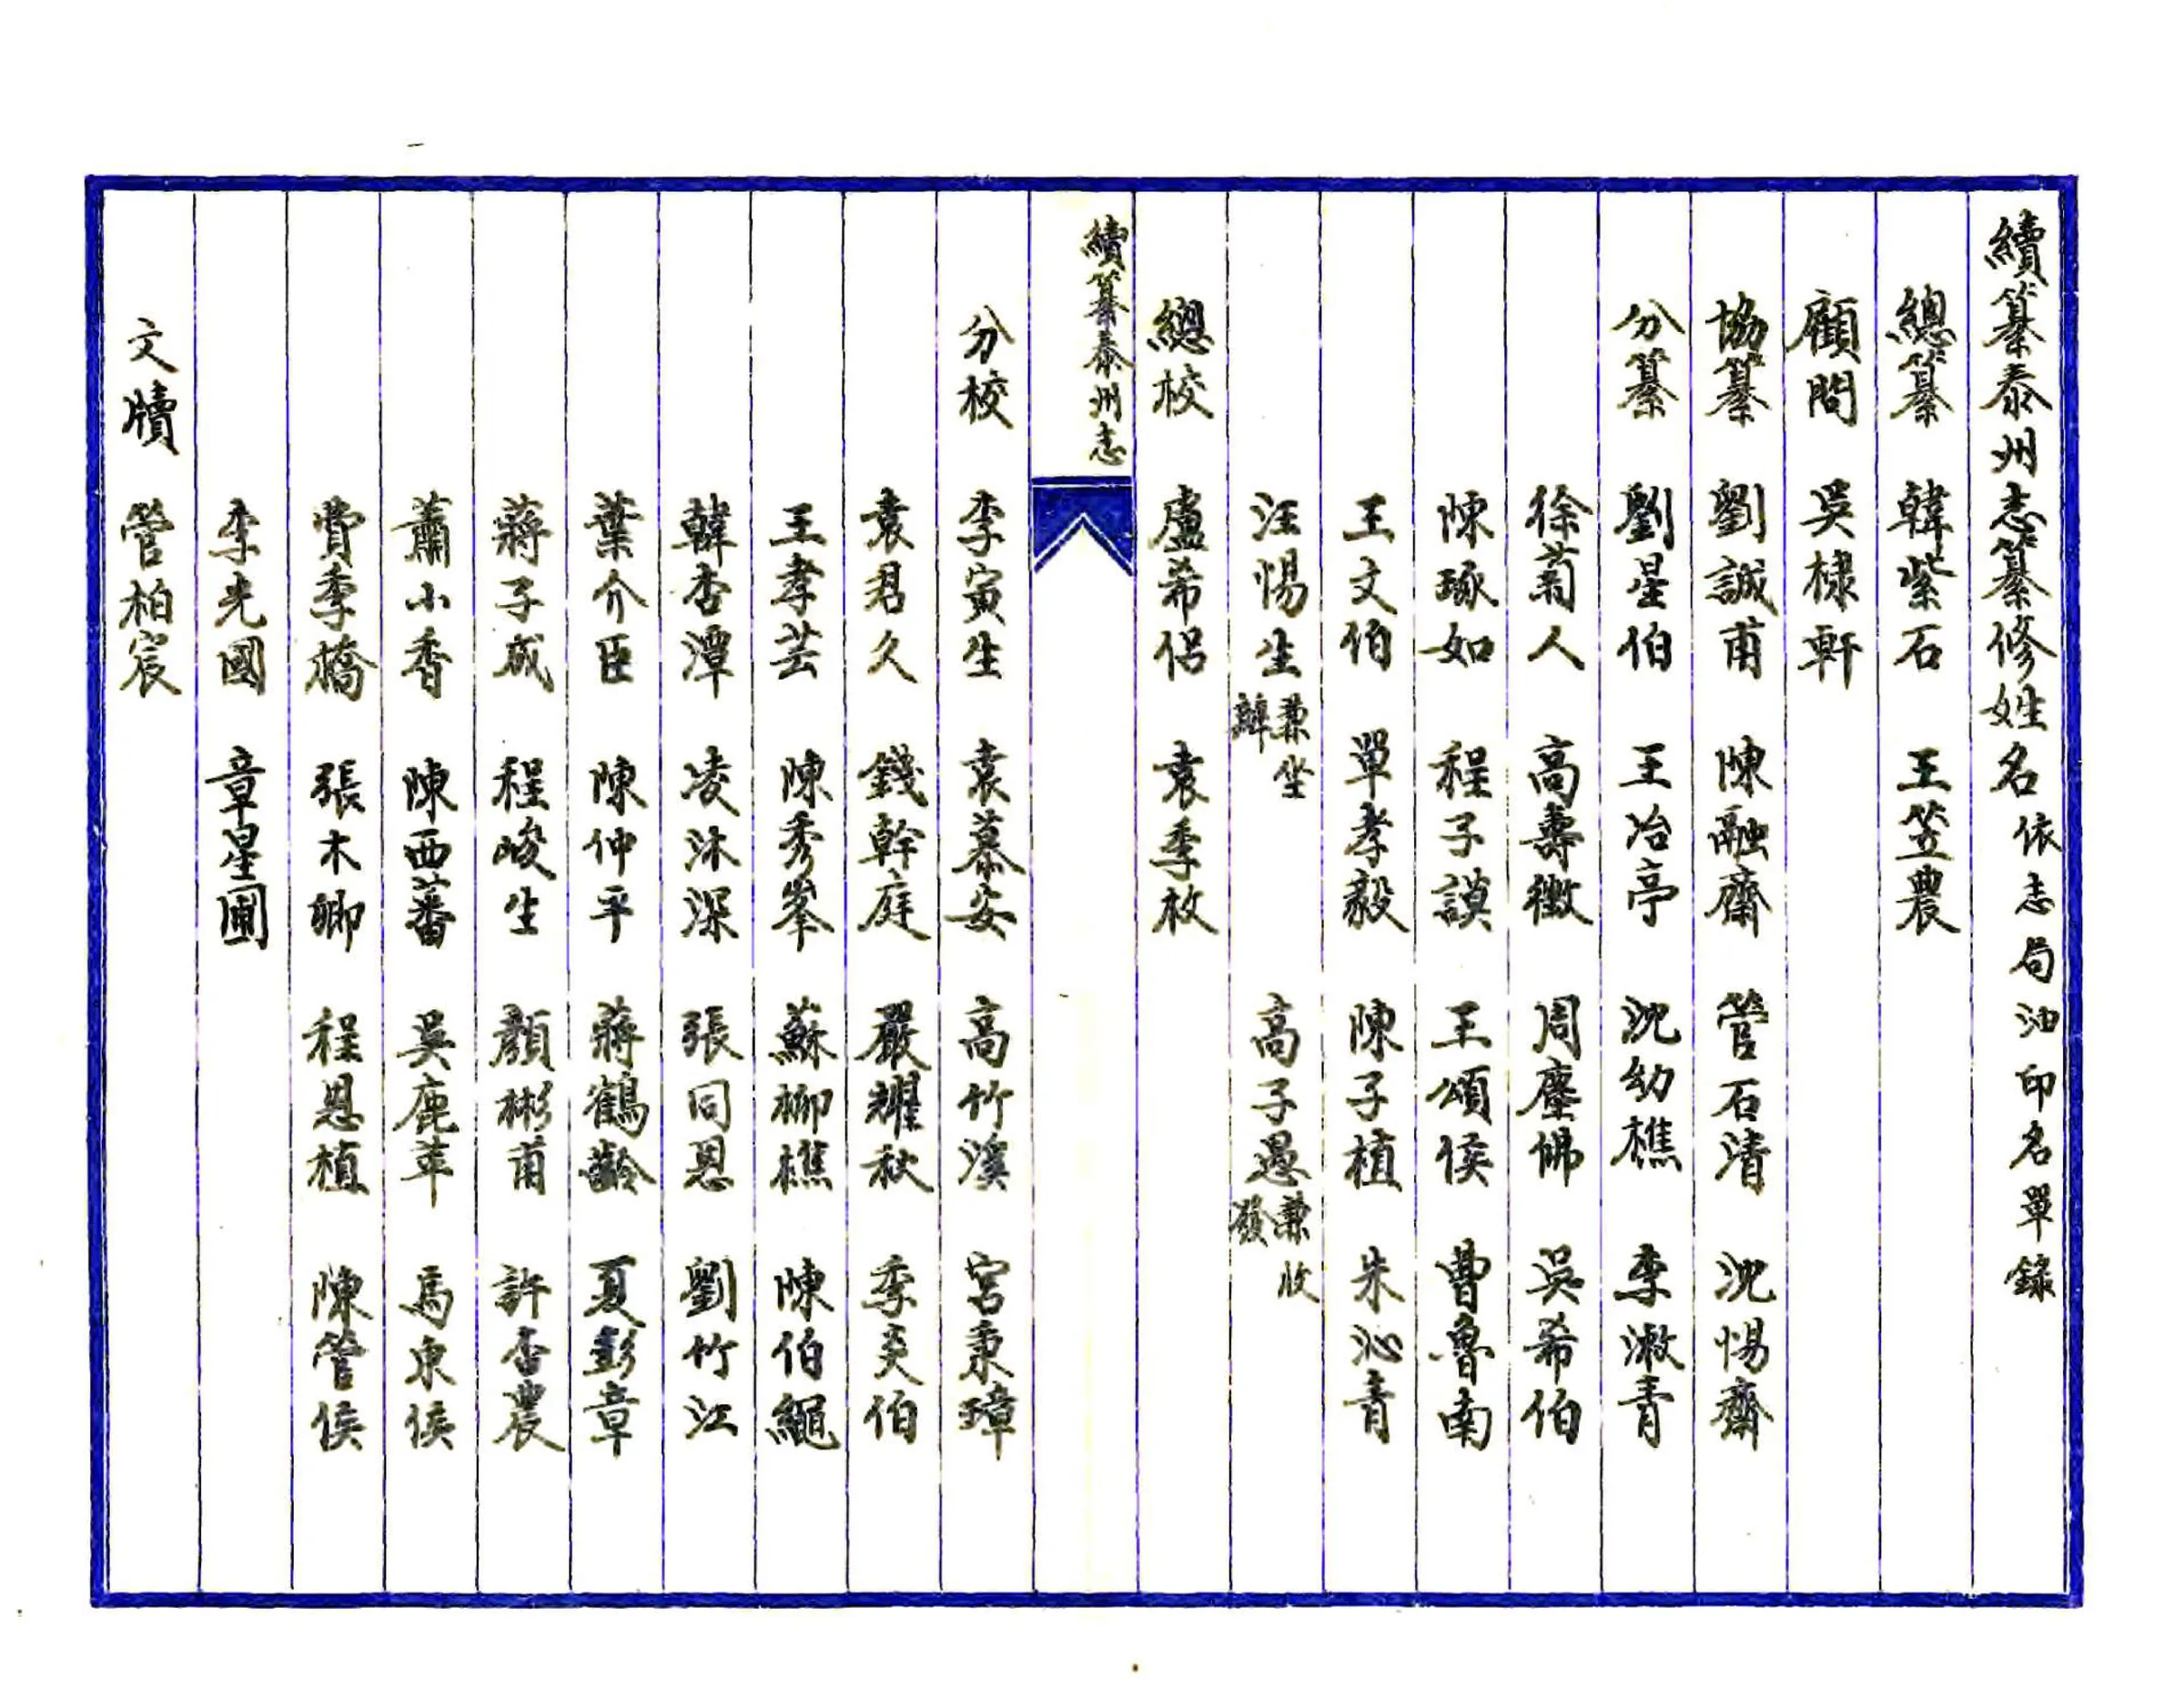 續纂泰州志纂修姓名 依志局油印名單錄
總纂 韓紫石 王笠農
顧問 吳棣軒
協纂 劉誠甫 陳融齋 管石清 沈惕齋
分纂 劉星伯 王冶亭 沈幼樵 李漱青
徐菊人 高壽徵 周塵佛 吳希伯
陳琢如 程子謨 王頌侯 曹魯南
王文伯 單孝毅 陳子植 朱沁青
汪惕生 兼坐辦 高子愚 兼收發
總校 盧希侶 袁季枚
續纂泰州志
分校 李寅生 袁慕安 高竹溪 宮秉璋
袁君久 錢幹庭 嚴耀秋 季爽伯
王孝芸 陳秀峯 蘇柳樵 陳伯繩
韓杏潭 凌沐深 張同恩 劉竹江
葉介臣 陳仲平 蔣鶴齡 夏彭章
蔣子成 程峻生 顏彬甫 許杏農
蕭小香 陳西蕃 吳鹿苹 馬東侯
費季橋 張木卿 程恩植 陳管侯
李光國 章星圃
文牘 管柏宸